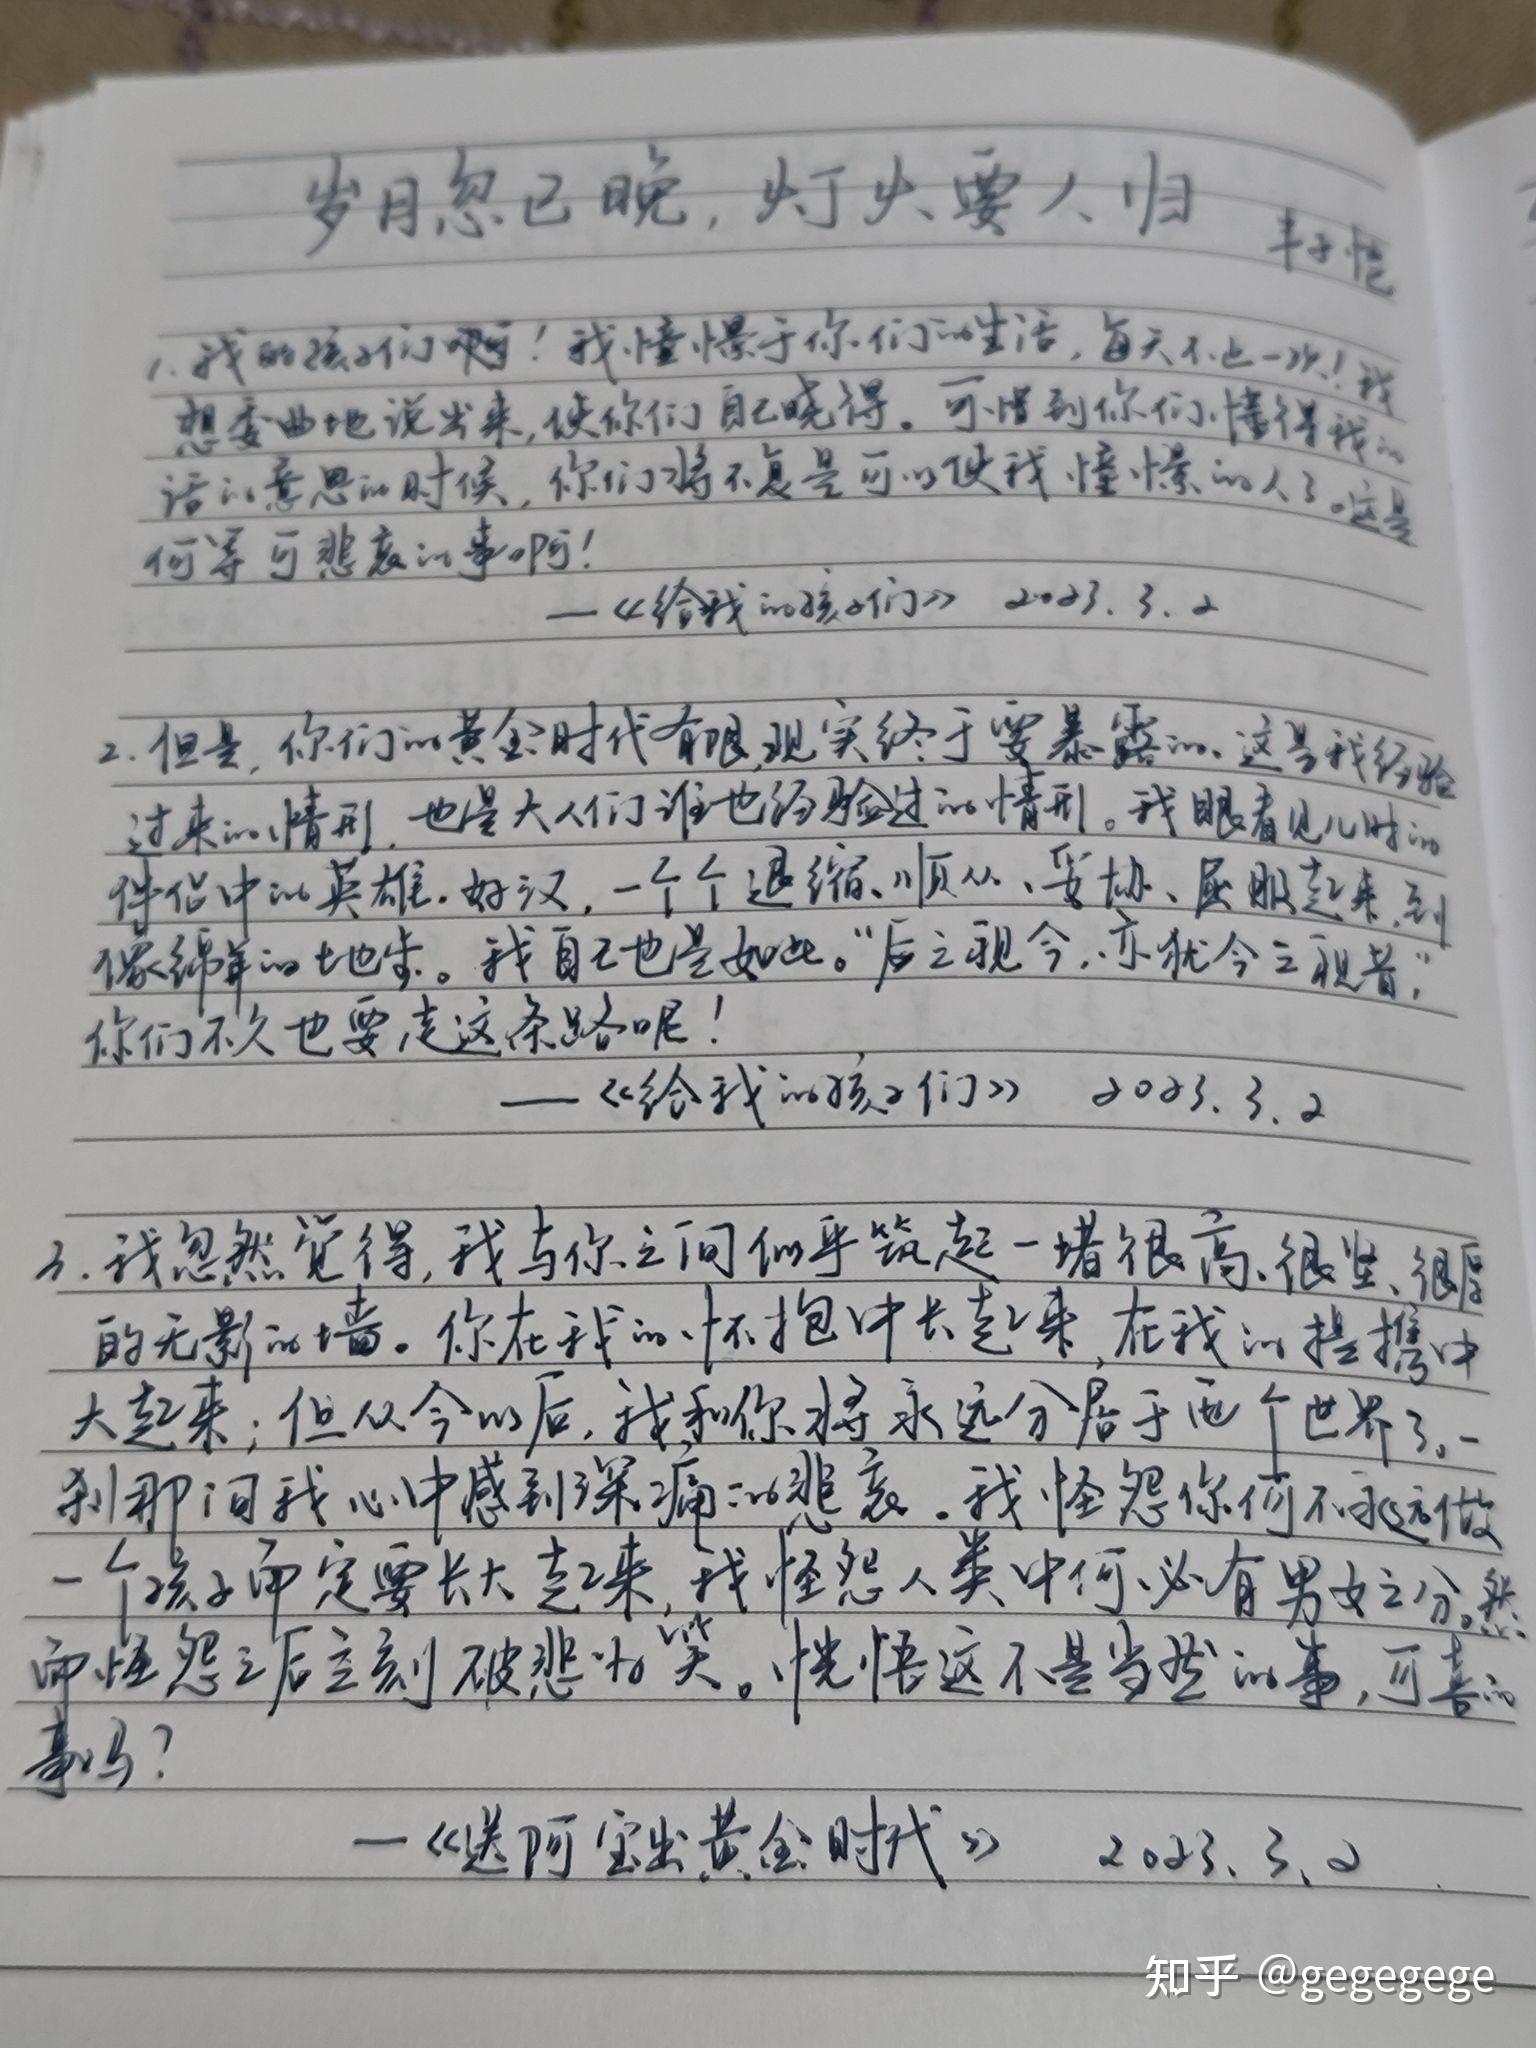 岁月忽已晚，灯火要人归
丰子恺
1.我的孩子们啊！我憧憬于你们的生活，每天不止一次！我
想委曲地说出来，使你们自己晓得。可惜到你们懂得我的
话的意思的时候，你们将不复是可以使我憧憬的人了。这是
何等可悲哀的事啊！
—《给我的孩子们》 2023.3.2
2.但是，你们的黄金时代有限，现实终于要暴露的。这是我经验
过来的情形，也是大人们谁也经验过的情形。我眼看见儿时的
伴侣中的英雄、好汉，一个个退缩、顺从、妥协、屈服起来，到
像绵羊的地步。我自己也是如此。“后之视今，亦犹今之视昔”，
你们不久也要走这条路呢！
—《给我的孩子们》 2023.3.2
3.我忽然觉得，我与你之间似乎筑起一堵很高、很坚、很厚
的无影的墙。你在我的怀抱中长起来，在我的提携中
大起来；但从今以后，我和你将永远分居于两个世界了。一
刹那间我心中感到深痛的悲哀。我怪怨你何不永远做
一个孩子而定要长大起来，我怪怨人类中何必有男女之分。然
而怪怨之后立刻破悲为笑。恍悟这不是当然的事，可喜的
事吗？
—《送阿宝出黄金时代》 2023.3.2
知乎 @gegegege